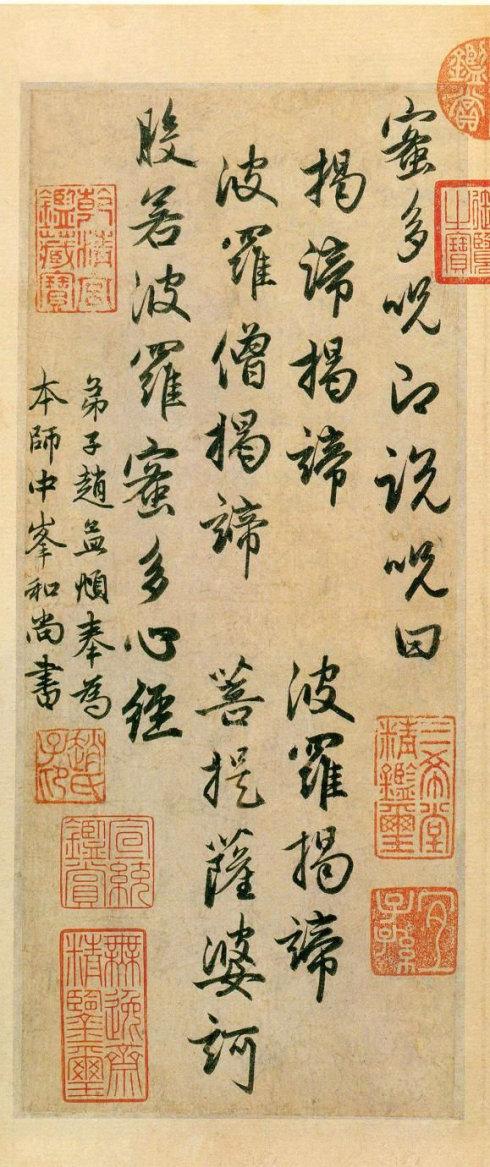 蜜多呪即說呪曰
揭諦揭諦 波羅揭諦
波羅僧揭諦 菩提薩婆訶
般若波羅蜜多心經
弟子趙孟頫奉為
本師中峯和尚書
鑑賞
御覽之寶
三希堂精鑑璽
宜子孫
乾清宮鑑藏寶
趙氏子昂
宣統鑑賞
無逸齋精鑒璽